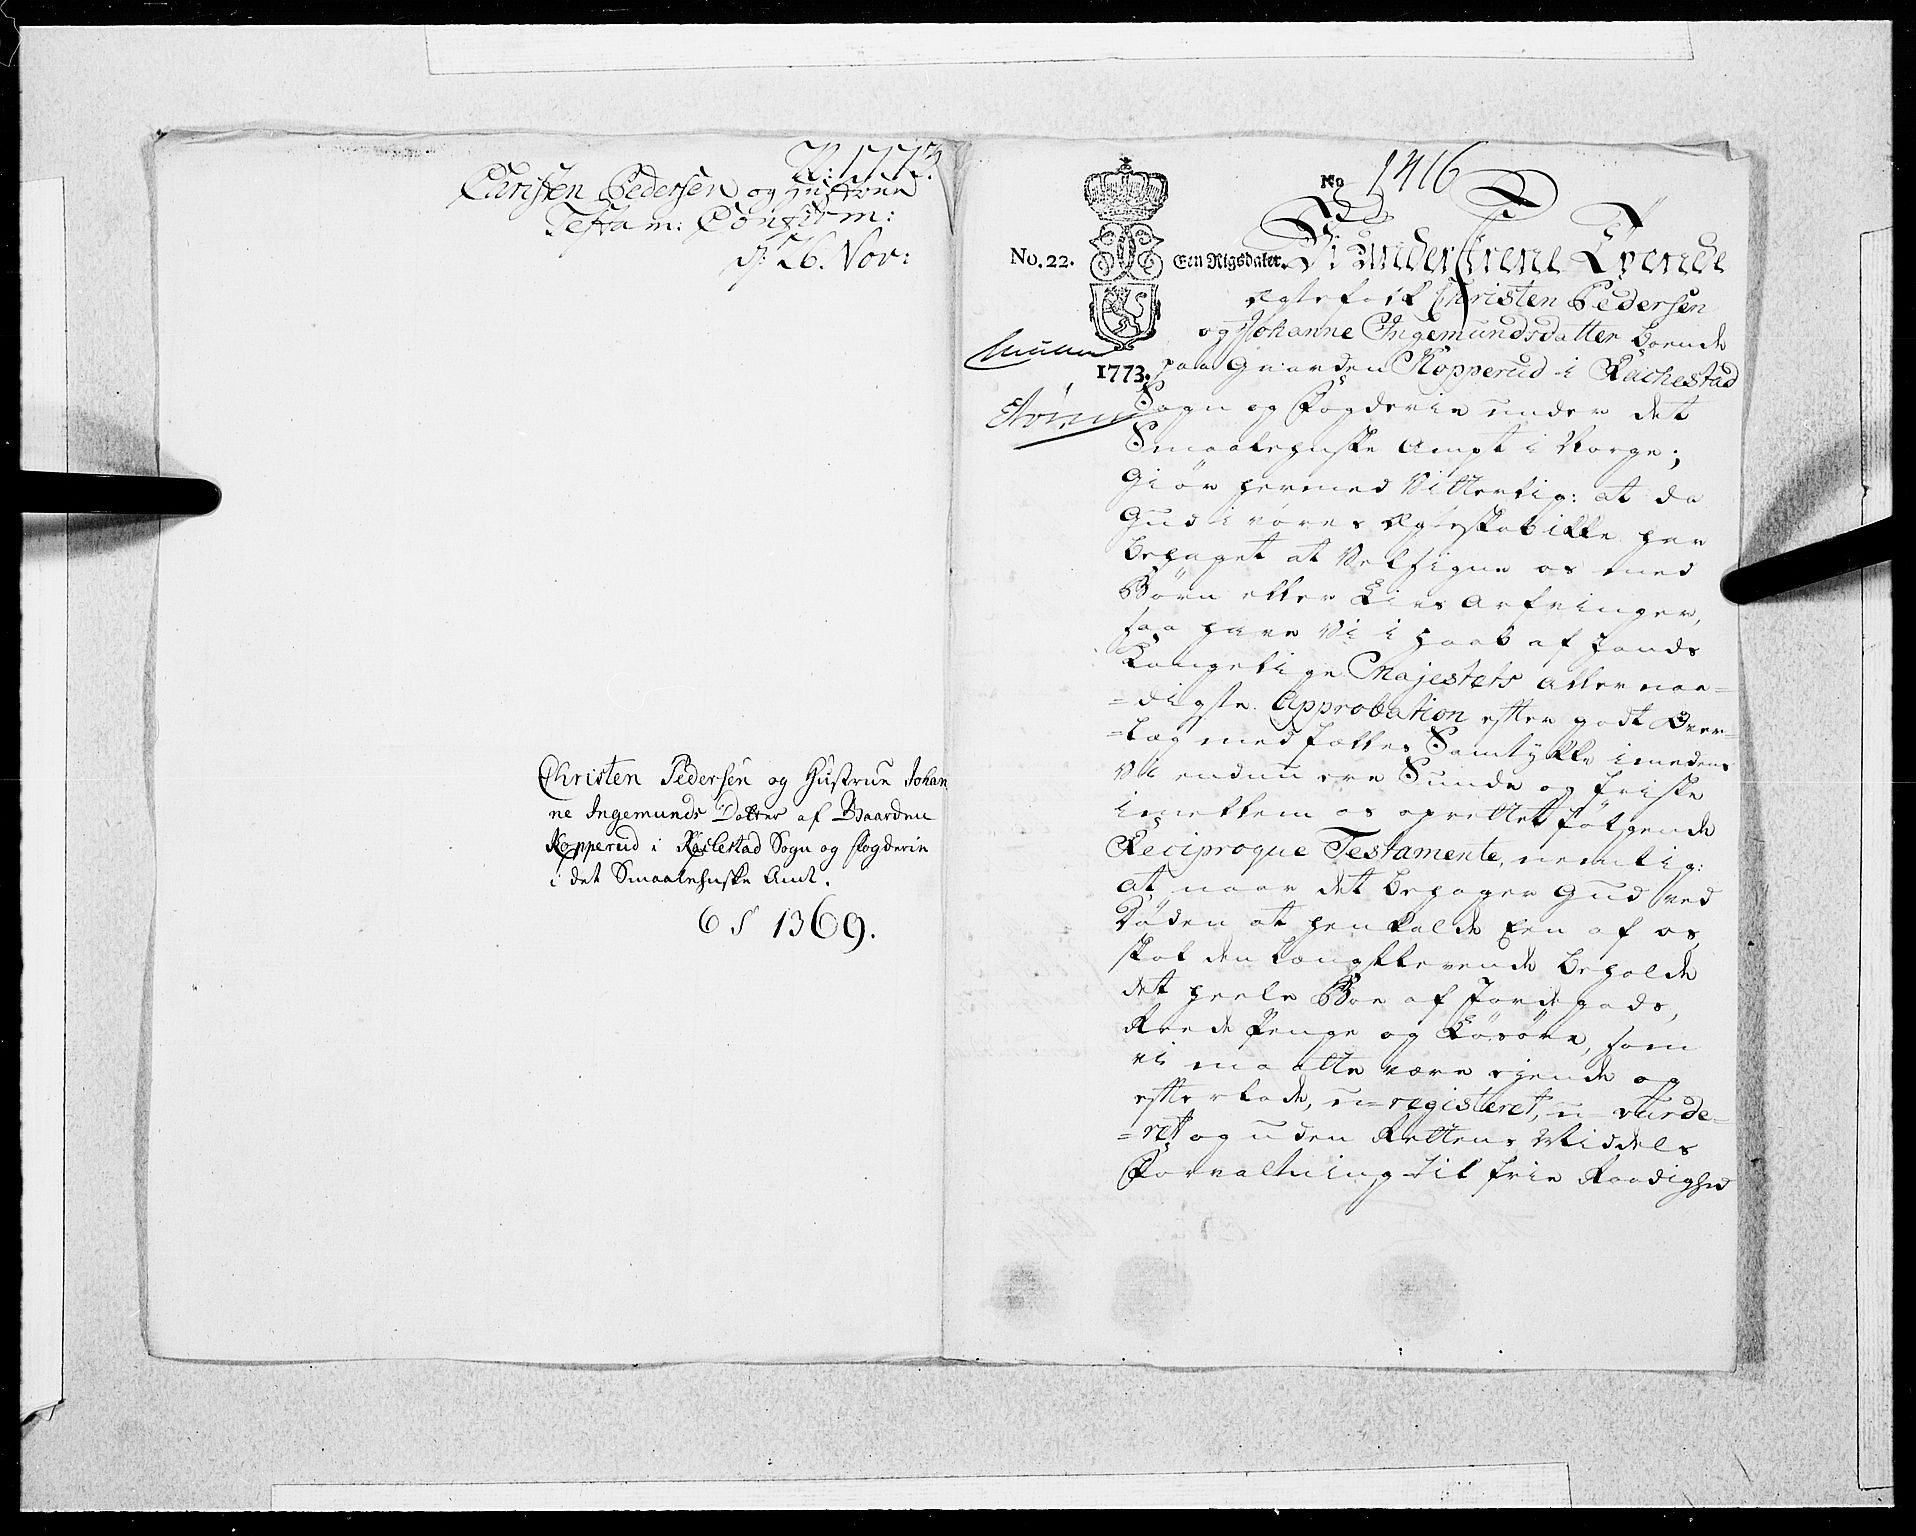 A: 1773.
Christen Pedersen og Hustrue
Testam: Confirm:
d: 26. Nov:
Christen Pedersen og Hustrue Johan
ne Ingemunds Datter af Gaarden
Kopperud i Rachestad Sogn og Fogderie
i det Smaalehnske Amt.
6 S 1369.
No 1416
No. 22. Een Rigsdaler.
1773.
Vi Underskrevne Tvende
Ægtefolk Christen Pedersen
og Johanne Ingemundsdatter boende
paa Gaarden Kopperud i Rachestad
Sogn og Fogderie under det
Smaalehnske Ampt i Norge;
Giør hermed Vitterlig: at da
Gud i vores Ægteskab ikke har
behaget at Velsigne os med
Børn eller Livs Arfvinger,
saa have Vi i haab af Hands
Kongelige Majestets allernaa=
=digste Approbation efter godt Over=
=læg med fælles Samtykke imedens
Vi endnu ere Sunde og friske
imellem os oprettet følgende
Reciproque Testamente, nemlig:
at naar det behager Gud ved
Døden at henkalde Een af os,
skal den længstlevende beholde
det heele Boe af Jordegods,
Rede Penge og Løsøre, som
vi maatte være ejende og
efterlade, u=registeret, u=vurde=
=ret og uden Rettens Middels
Forvaltning til frie Raadighed